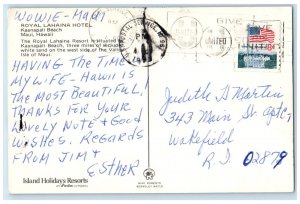 WOWIE-MAUI
ROYAL LAHAINA HOTEL
Kaanapali Beach
Maui, Hawaii
The Royal Lahaina Resort is situated
Kaanapali Beach, three miles of secluded
white sand on the west side of the
Maui.
HAVING THE TIME
MY LIFE - HAWAII IS
THE MOST BEAUTIFUL!
THANKS FOR YOUR
LOVELY NOTE & GOOD
WISHES. REGARDS
FROM JIM &
ESTHER
Island Holidays Resorts
PM
GIVE
UNITED
Judith D Martin
343 Main St apt C,
Wakefield
R I 02879